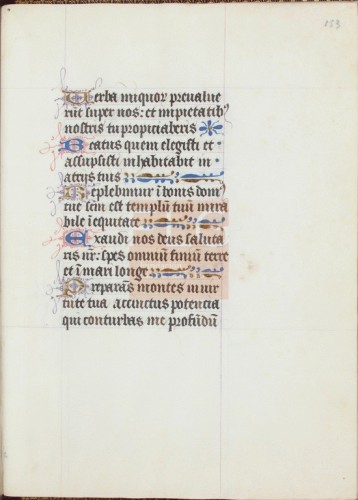 153
Verba iniquor prevalue
rūt super nos: et impietatibꝰ
nostris tu propiciaberis
Beatus quem elegisti et
assūpsisti inhabitabit in
atrijs tuis
Replebimur ī bonis domꝰ
tue scm̄ est templū tuū mira
bile ī equitate
Exaudi nos deus saluta
ris nr̄: spes omniū finiū terre
et ī mari longe
Preparās montes in vir
tute tua accinctus potencia
qui conturbas me profūdū